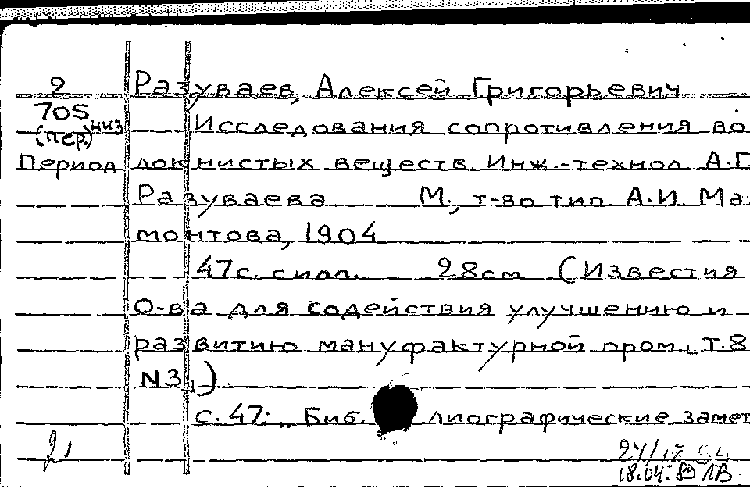 2 Разуваев, Алексей Григорьевич
705 (пер.) низ Исследования сопротивления во
Период локнистых веществ. Инж.-технол А.Г
Разуваева М., т-во тип А.И Ма
монтова, 1904
47с. с илл. 28см (Известия
О-ва для содействия улучшению и
развитию мануфактурной пром., т.8
N3,)
с. 47: „Биб. лиографические замет
21
18.04.80 ЛВ